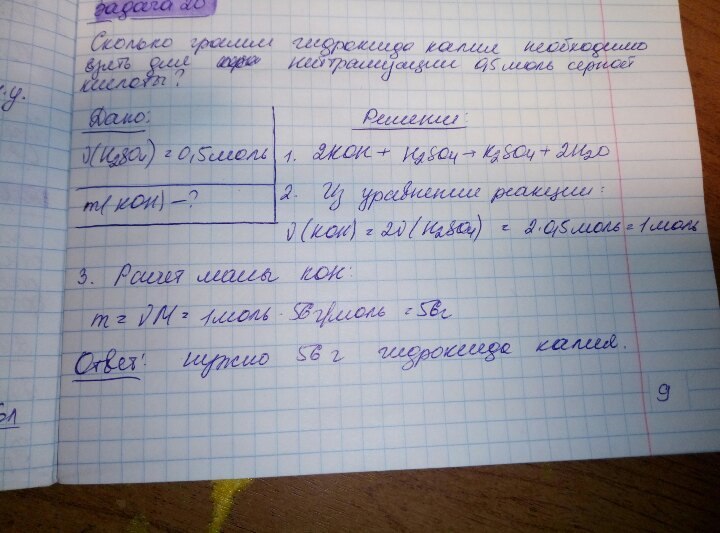 Задача 20
Сколько грамм гидроксида калия необходимо
взять для нейтрализации 0,5 моль серной
кислоты?
Дано:
ν(H2SO4) = 0,5 моль
m(KOH) – ?
Решение:
1. 2KOH + H2SO4 → K2SO4 + 2H2O
2. Из уравнения реакции:
ν(KOH) = 2ν(H2SO4) = 2·0,5 моль = 1 моль
3. Расчет массы KOH:
m = νM = 1 моль · 56 г/моль = 56 г
Ответ: нужно 56 г гидроксида калия.
9